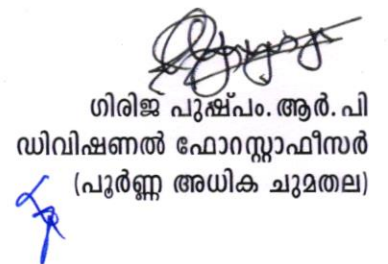 ഗിരിജ പുഷ്പം. ആർ. പി
ഡിവിഷണൽ ഫോറസ്റ്റാഫീസർ
(പൂർണ്ണ അധിക ചുമതല)